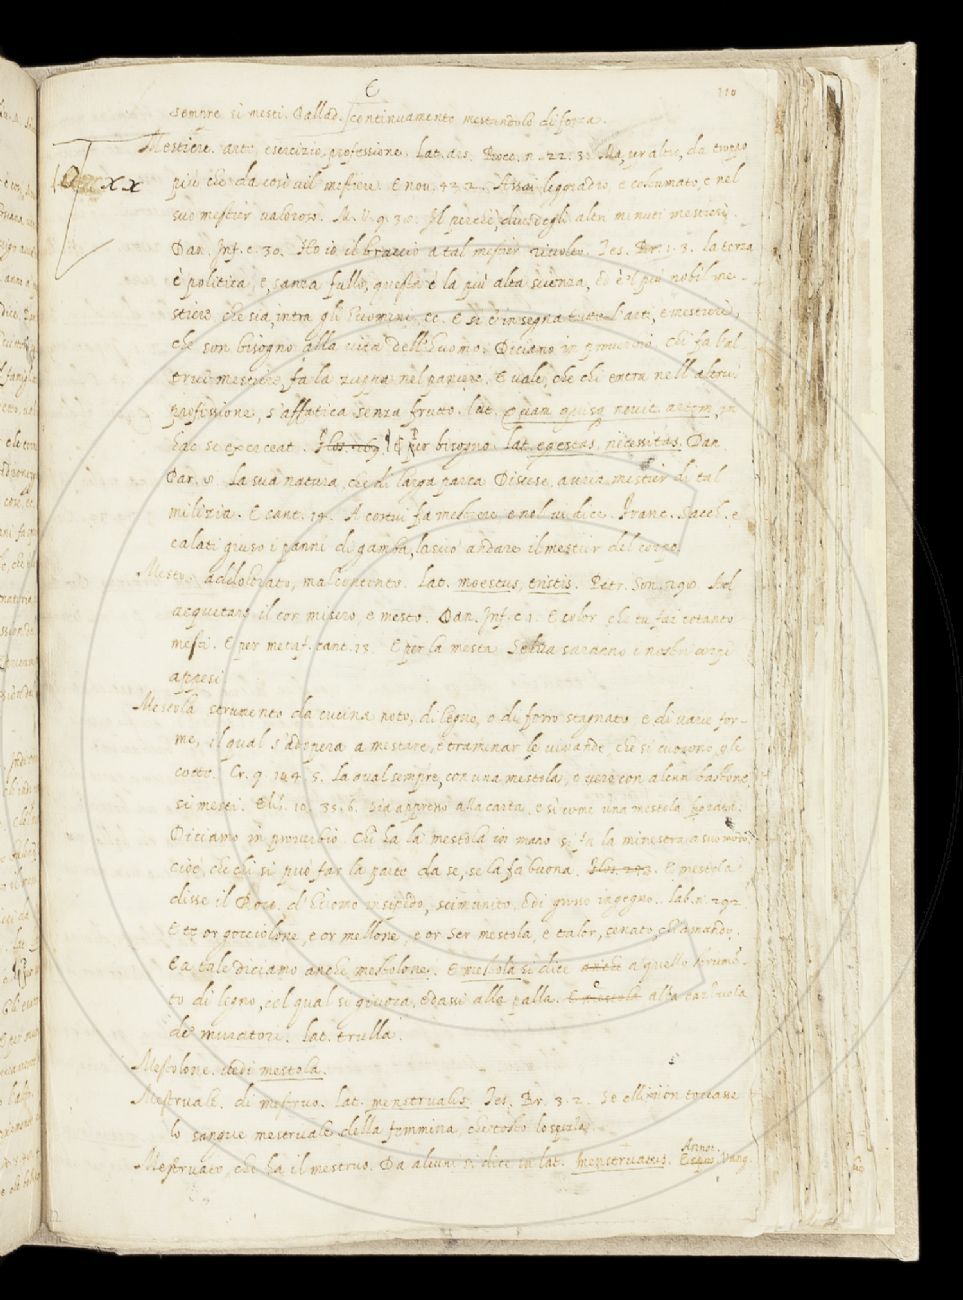 E
110
sempre si mesti. Pallad. continuamente mestandolo di forza.
Mestiere. arte, esercizio, professione. Lat. ars. Bocc. n. 22. 3. Ma, per altro, da troppo
più che da così vil mestiere. E nov. 42. 2. Assai leggiadro, e costumato, e nel
suo mestier valoroso. M. V. 9. 30. Il perchè, degli altri minuti mestieri.
Dan. Inf. c. 30. Ho io il braccio a tal mestier Tes. Br. 1. 3. la terza
è politica, e, sanza fallo, questa è la più alta scienza, ed è 'l più nobil me-
stiero, che sia, intra gli huomini, ec. E si c'insegna tutte l'arti, e mestieri,
che son bisogno alla vita dell'huomo. Diciamo in proverbio, chi fa l'al
trui mestiero, fa la zuppa nel paniere. E vale, che chi entra nell'altrui
professione, s'affatica senza frutto. lat. quam quisq novit artem, in
hac se exerceat. Flos. 169 E per bisogno. lat. egestas, necessitas. Dan.
Par. 8. La sua natura, che di larga parca Discese, avria mestier di tal
milizia. E cant. 14. A costui fa mestiere e nol vi dice. Franc. Sacch. e
calati giuso i panni di gamba, lasciò andare il mestier del corpo.
Mesto. addolorato, malcontento. Lat. moestus, tristis. Petr. Son. 290.
acquetare il cor misero, e mesto. Dan. Inf. c. 1. E color che tu fai cotanto
mesti. E per metaf. cant. 13. E per la mesta Selva saranno i nostri corpi
appesi.
Mestola strumento da cucina noto, di legno, o di ferro stagnato e di varie for-
me, il qual s'adopera a mestare, e tramenar le vivande, che si cuocono, o le
cotte. Cr. 9. 104. 5. La qual sempre, con una mestola, o vero con alcun bastone,
si mesti. 10. 35. 6. Sia appreso alla carta, e sì come una mestola forata.
Diciamo in proverbio Chi ha la mestola in mano si fa la minestra a suo modo,
cioè, che chi si può far la parte da se, se la fa buona. Flos. 293. E mestola
disse il Bocc. d'huomo insipido, scimunito, e di grosso ingegno. lab. n. 292.
E te or gocciolone, e or mellone, e or Ser mestola, e talor, cenato, chiamando.
E a tale diciamo anche mestolone. E mestola si dice anche a quello strumē-
to di legno, col qual si giuoca, e dassi alla palla. E mestola alla cazzuola
de' muratori. Lat. trulla.
Mestolone. vedi mestola.
Mestruale. di mestruo. Lat. menstrualis. Tes. Br. 3. 2. Se ellino non toccasse
lo sangue mestruale della femmina, che tosto lo
Mestruato, che ha il mestruo. Da alcuni si dice in lat. menstruatus. Annot. Vang.